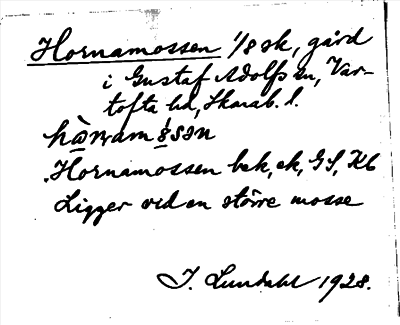 Hornamossen 1/8 sk, gård
i Gustaf Adolfs sn, Var-
tofta hd, Skarab. l.
Hornamossen bek, ek, GS, Kb
Ligger vid en större mosse
J. Lundahl 1928.